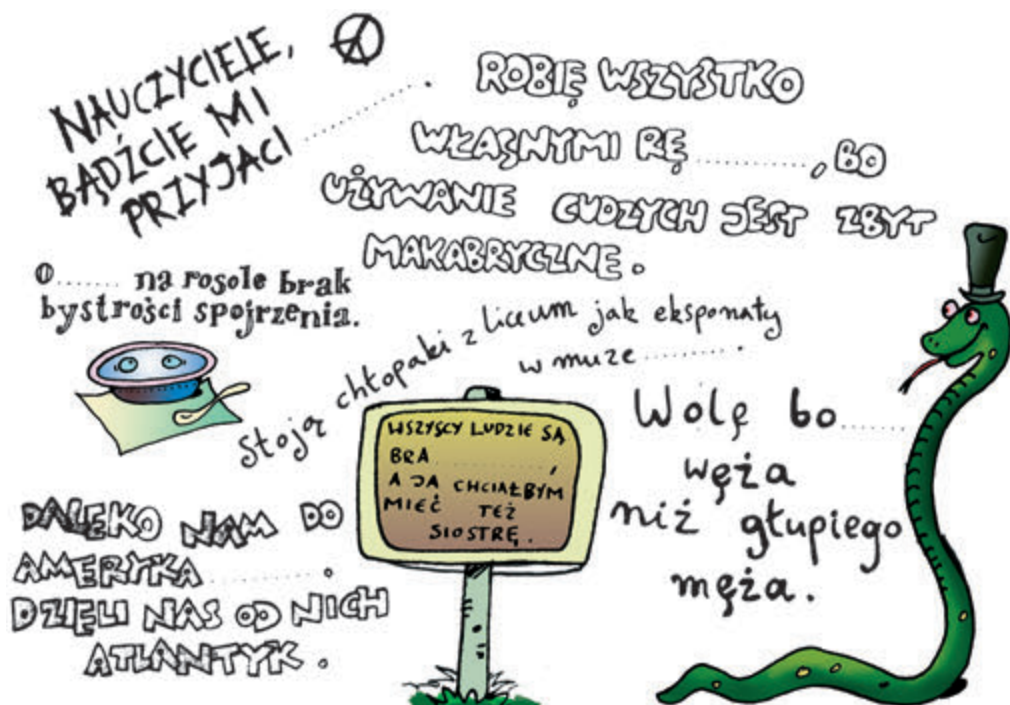 NAUCZYCIELE,
BĄDŹCIE MI
PRZYJACI ........ .
ROBIĘ WSZYSTKO
WŁASNYMI RĘ ........ , BO
UŻYWANIE CUDZYCH JEST ZBYT
MAKABRYCZNE.
O ...... na rosole brak
bystrości spojrzenia.
Stoją chłopaki z liceum jak eksponaty
w muze ........ .
WSZYSCY LUDZIE SĄ
BRA ........ ,
A JA CHCIAŁBYM
MIEĆ TEŻ
SIOSTRĘ.
Wolę bo ......
węża
niż głupiego
męża.
DALEKO NAM DO
AMERYKA ........ .
DZIELI NAS OD NICH
ATLANTYK.